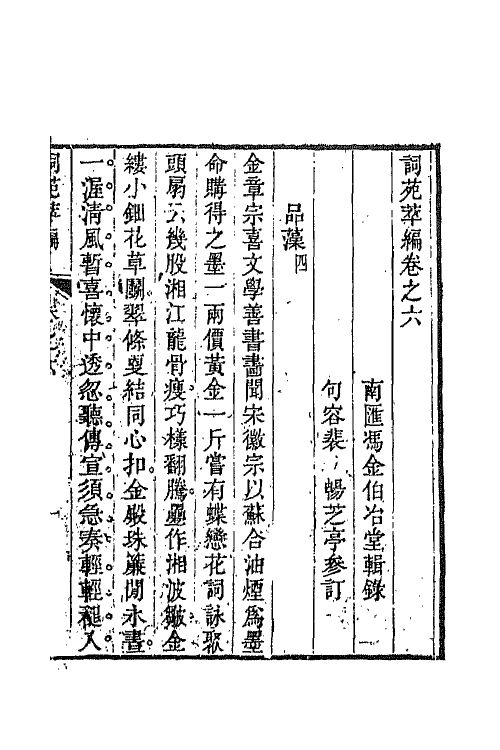 詞苑萃編卷之六
南匯馮金伯冶堂輯錄 一
句容裴 暢芝亭參訂
品藻四
金章宗喜文學善書畫聞宋徽宗以蘇合油煙爲墨
命購得之墨一兩價黃金一斤嘗有蝶戀花詞詠聚
頭扇云幾股湘江龍骨瘦巧樣翻騰疊作湘波皺金
縷小鈿花草鬭翠條更結同心扣金殿珠簾閒永晝
一渥淸風暫喜懷中透忽聽傳宣須急奏輕輕褪入
詞苑萃編